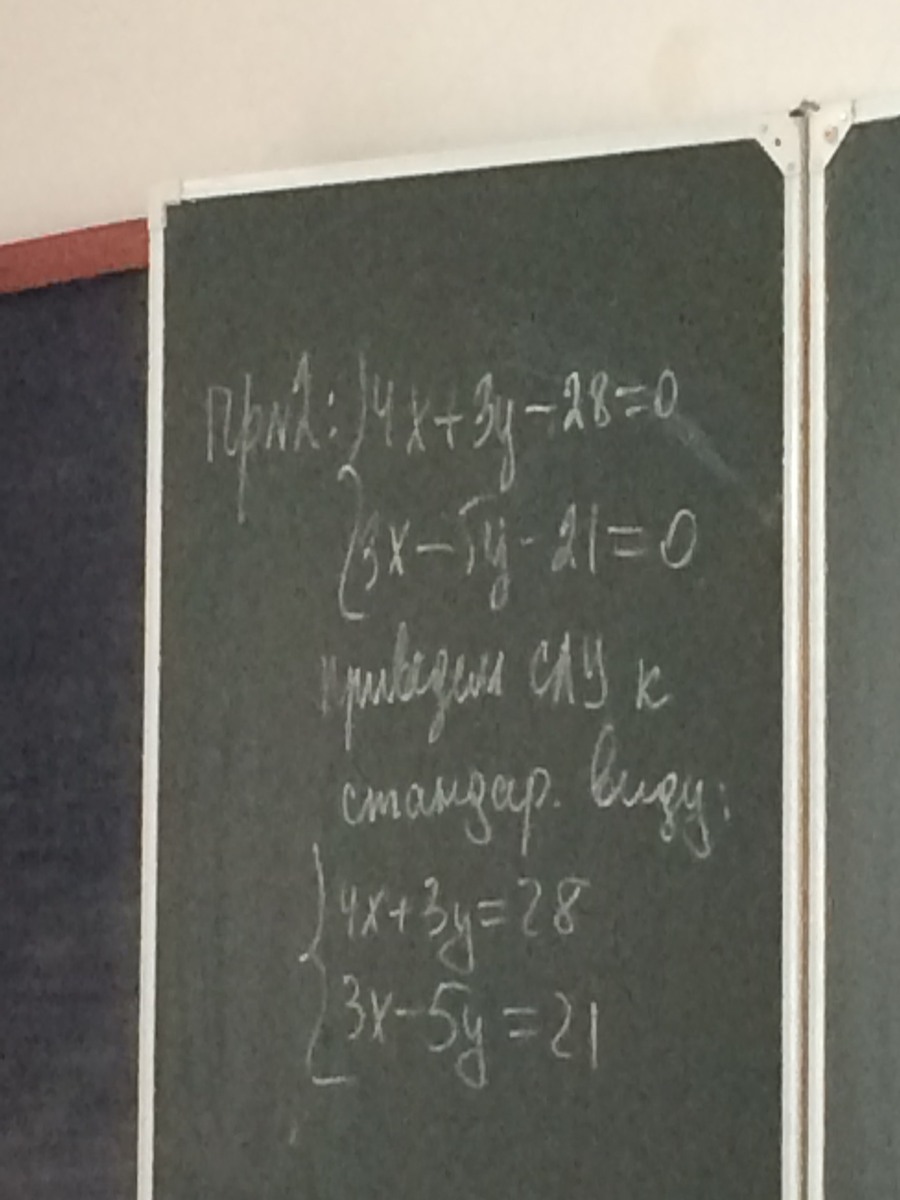 Пр№2: { 4x+3y-28=0
{ 3x-5y-21=0
приведем СЛУ к
стандар. виду:
{ 4x+3y=28
{ 3x-5y=21